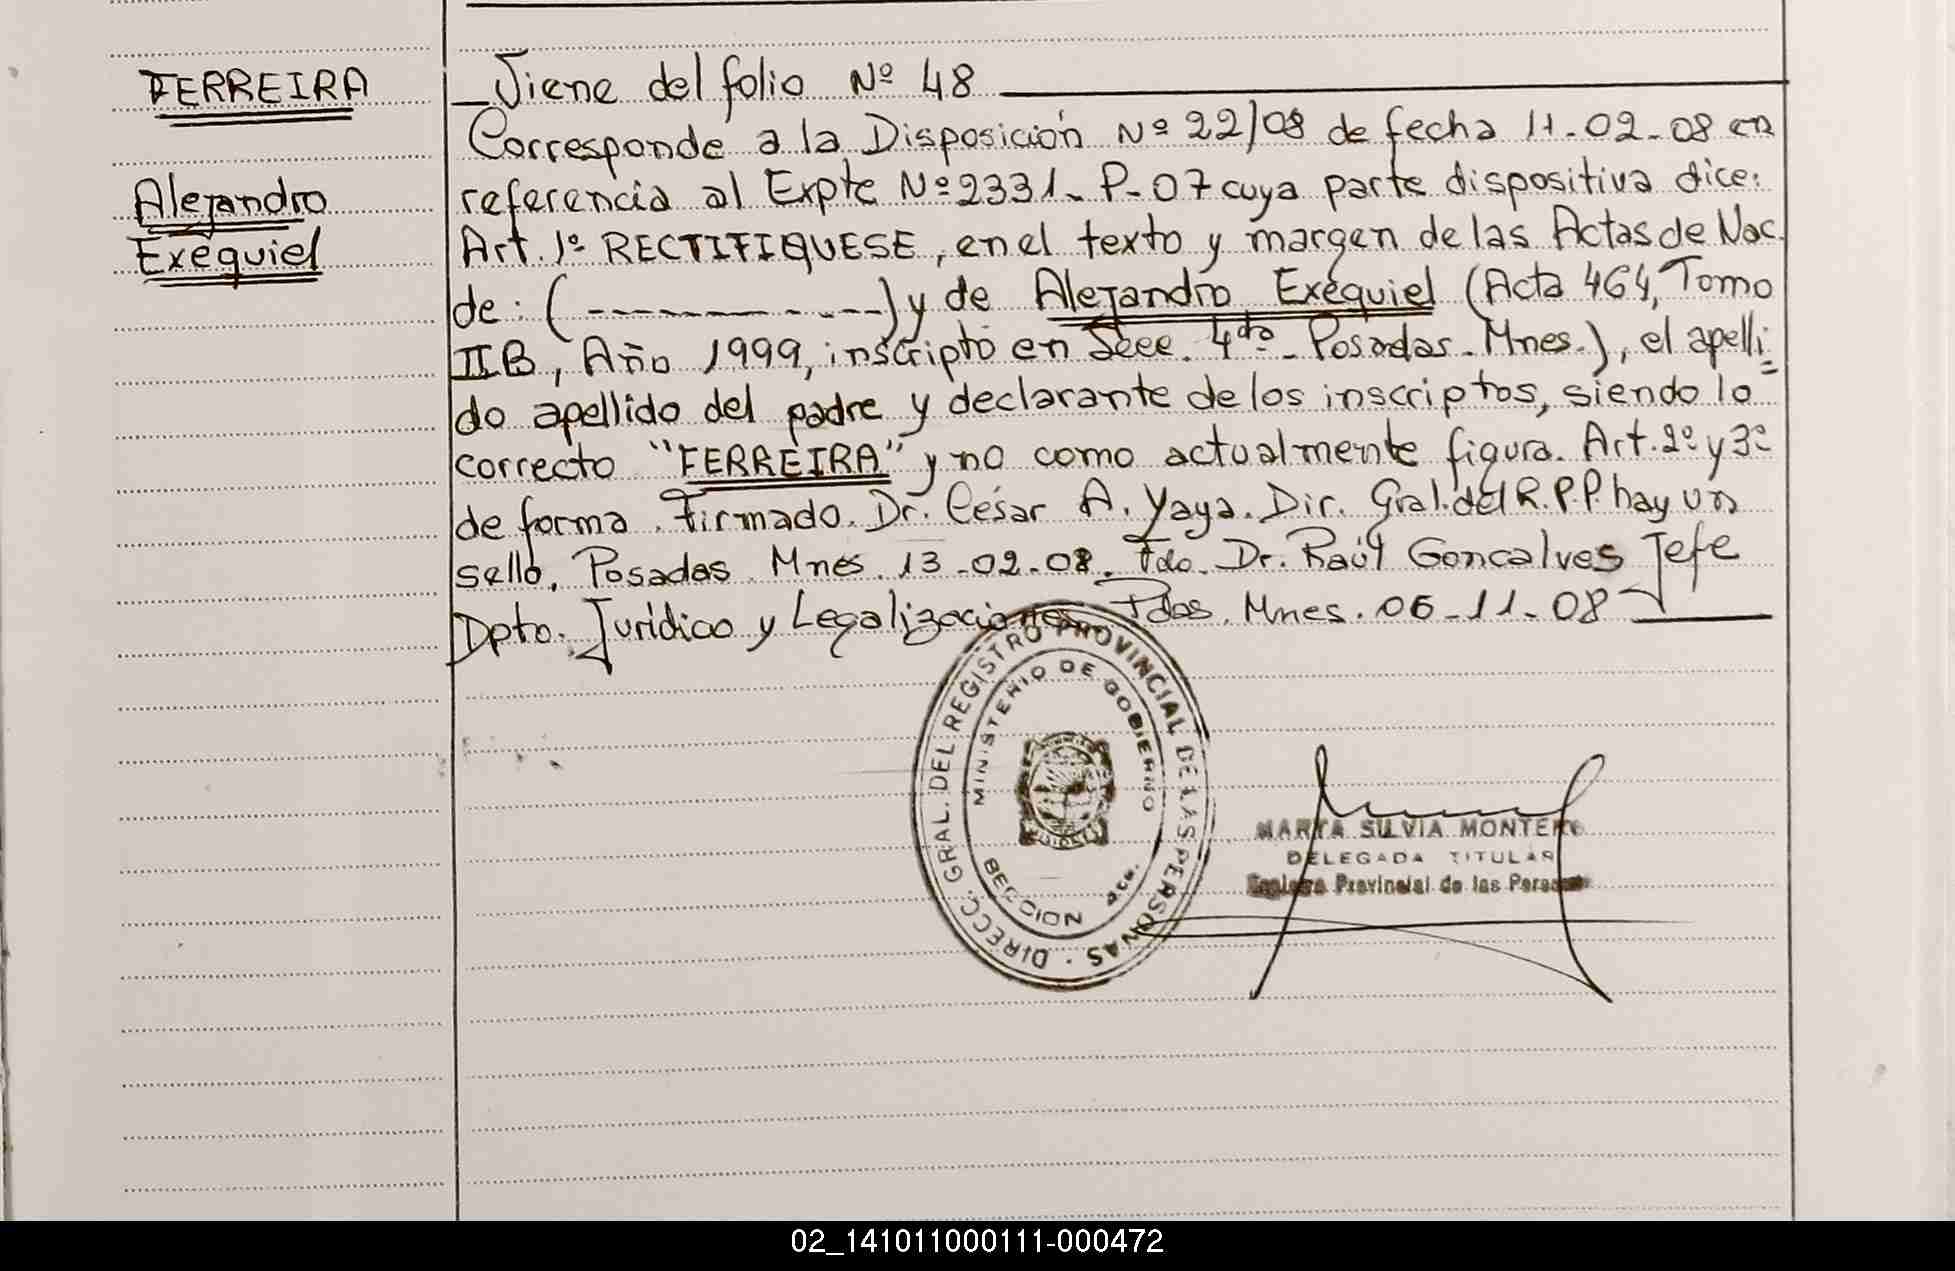 FERREIRA
Alejandro
Exequiel
Viene del folio Nº 48
Corresponde a la Disposición Nº 22/08 de fecha 11-02-08 en
referencia al Expte Nº 2331-P-07 cuya parte dispositiva dice:
Art. 1º RECTIFIQUESE, en el texto y margen de las Actas de Nac.
de: (------------) y de Alejandro Exequiel (Acta 464, Tomo
IIB, Año 1999, inscripto en Secc. 4ta - Posadas - Mnes.), el apelli=
do apellido del padre y declarante de los inscriptos, siendo lo
correcto "FERREIRA" y no como actualmente figura. Art. 2º y 3º
de forma. Firmado. Dr. César A. Yaya. Dir. Gral. del R.P.P. hay un
sello. Posadas. Mnes. 13-02-08. Fdo. Dr. Raúl Goncalves Jefe
Dpto. Jurídico y Legalizaciones Pdas. Mnes. 06-11-08
DIRECC. GRAL. DEL REGISTRO PROVINCIAL DE LAS PERSONAS
MINISTERIO DE GOBIERNO
SECCION
MARTA SILVIA MONTERO
DELEGADA TITULAR
Registro Provincial de las Personas
02_141011000111-000472